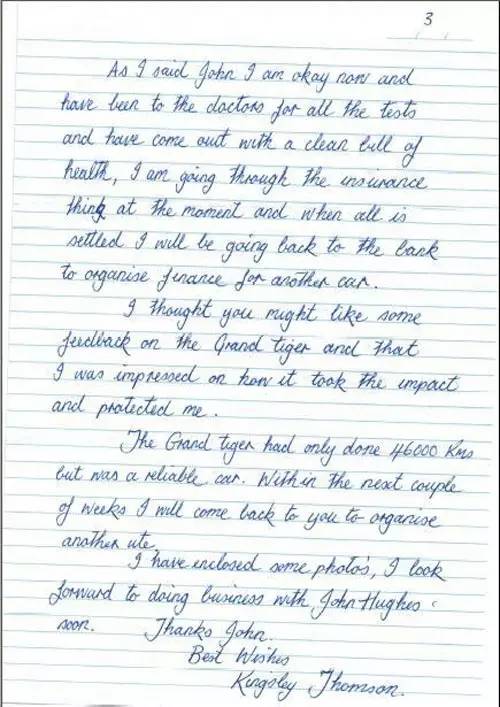 3
As I said John I am okay now and
have been to the doctors for all the tests
and have come out with a clean bill of
health, I am going through the insurance
thing at the moment and when all is
settled I will be going back to the bank
to organise finance for another car.
I thought you might like some
feedback on the Grand tiger and that
I was impressed on how it took the impact
and protected me.
The Grand tiger had only done 46000 Kms
but was a reliable car. Within the next couple
of weeks I will come back to you to organise
another ute,
I have enclosed some photo's, I look
forward to doing business with John Hughes
soon. Thanks John.
Best Wishes
Kingsley Thomson.